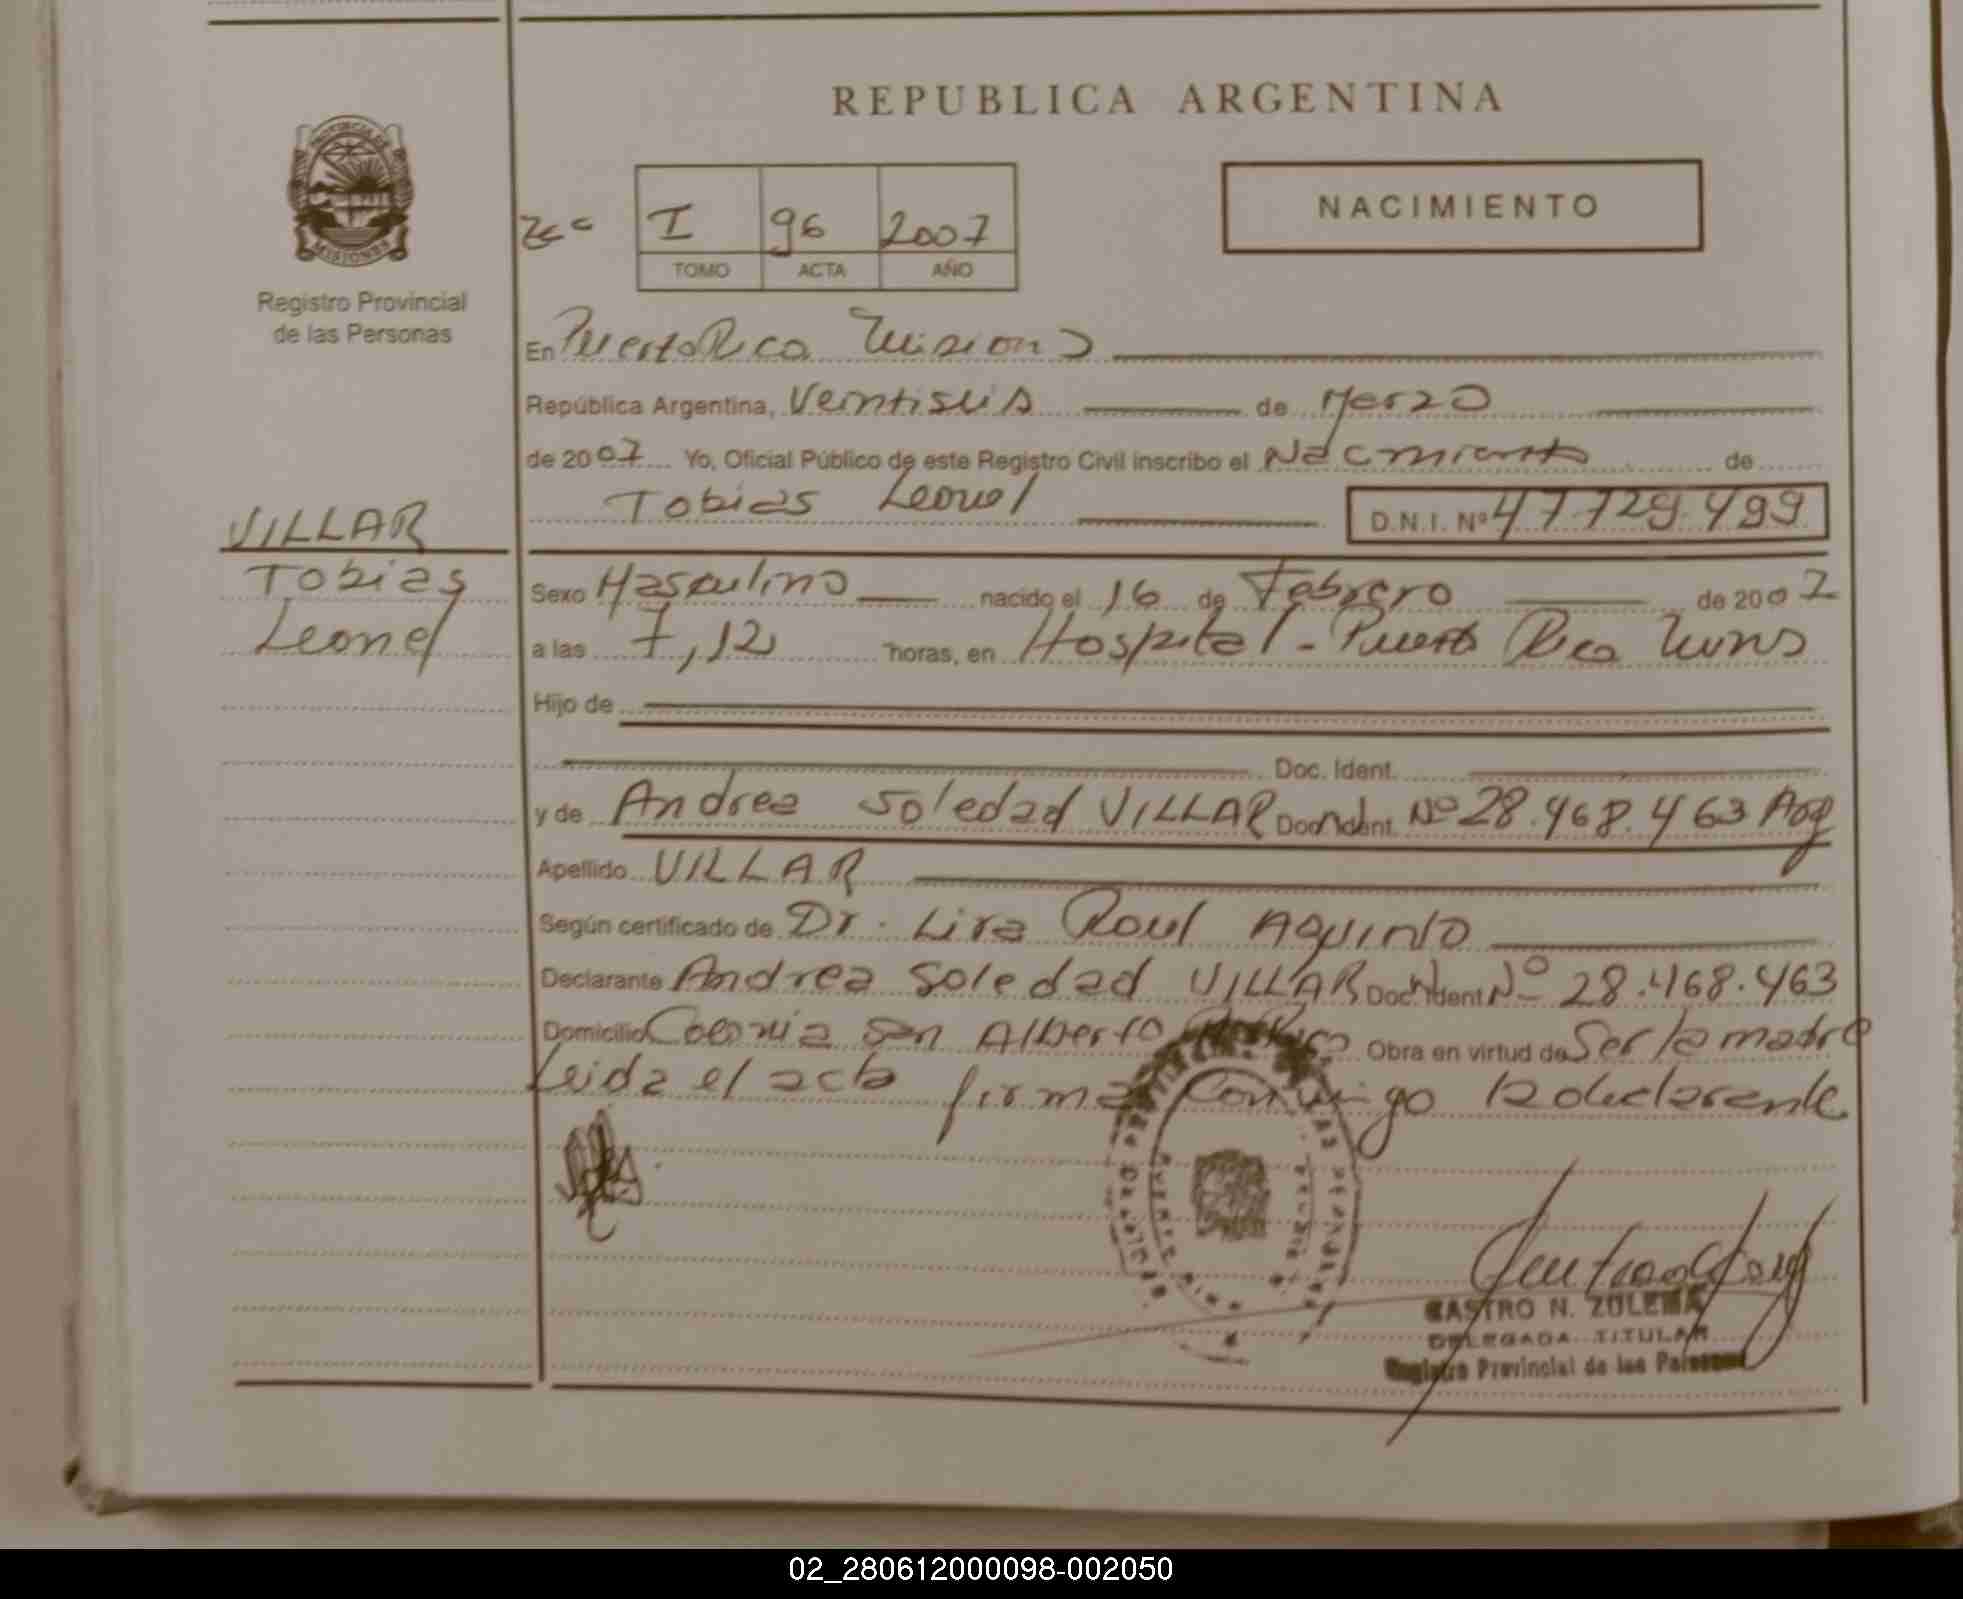 REPUBLICA ARGENTINA
PROVINCIA DE
MISIONES
Registro Provincial
de las Personas
I 96 2007
TOMO ACTA AÑO
NACIMIENTO
En Puerto Rico Misiones
República Argentina, Veintiseis de Marzo
de 2007 Yo, Oficial Público de este Registro Civil inscribo el Nacimiento de
Tobias Leonel D.N.I. Nº 47.729.499
VILLAR
Tobias
Leonel
Sexo Masculino nacido el 16 de Febrero de 2007
a las 7,12 horas, en Hospital - Puerto Rico Mnes
Hijo de
Doc. Ident.
y de Andrea Soledad VILLAR Doc. Ident. Nº 28.468.463 Arg
Apellido VILLAR
Según certificado de Dr. Lira Raul Aquino
Declarante Andrea Soledad VILLAR Doc. Ident Nº 28.468.463
Domicilio Colonia San Alberto Pto Rico Obra en virtud de Ser la madre
Leida el acta firma Conmigo la declarante
CASTRO N. ZULEMA
DELEGADA TITULAR
Registro Provincial de las Personas
02_280612000098-002050